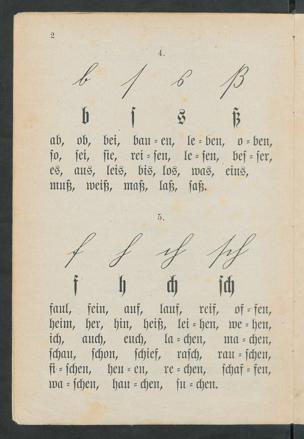 2
4.
b ſ s ß
b ſ s ß
ab, ob, bei, bau-en, le-ben, o-ben,
ſo, ſei, ſie, rei-ſen, le-ſen, beſ-ſer,
es, aus, leis, bis, los, was, eins,
muß, weiß, maß, laß, ſaß.
5.
f h ch ſch
f h ch ſch
faul, fein, auf, lauf, reif, of-fen,
heim, her, hin, heiß, lei-hen, we-hen,
ich, auch, euch, la-chen, ma-chen,
ſchau, ſchon, ſchief, raſch, rau-ſchen,
fi-ſchen, heu-en, re-chen, ſchaf-fen,
wa-ſchen, hau-chen, ſu-chen.